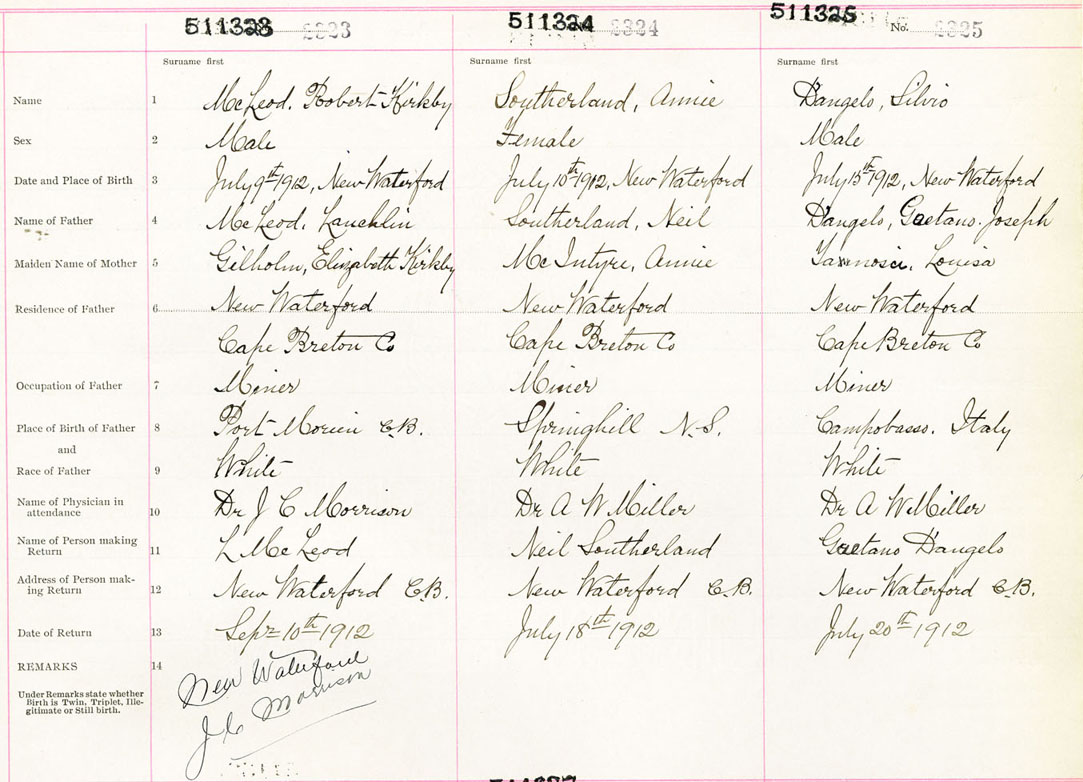 511323 2323 511324 2324 511325 No. 2325
Surname first Surname first Surname first
Name 1 McLeod, Robert Kirkby Southerland, Annie Dangelo, Silvio
Sex 2 Male Female Male
Date and Place of Birth 3 July 9th 1912, New Waterford July 10th 1912, New Waterford July 15th 1912, New Waterford
Name of Father 4 McLeod, Lauchlin Southerland, Neil D'angelo, Gaetano Joseph
Maiden Name of Mother 5 Gilholm, Elizabeth Kirkby McIntyre, Annie Louisa
Residence of Father 6 New Waterford New Waterford New Waterford
Cape Breton Co Cape Breton Co Cape Breton Co
Occupation of Father 7 Miner Miner Miner
Place of Birth of Father 8 Port Morien C.B. Springhill N.S. Campobasso. Italy
and
Race of Father 9 White White White
Name of Physician in
attendance 10 Dr J C Morrison Dr A W Miller Dr A W Miller
Name of Person making
Return 11 L McLeod Neil Southerland Gaetano D'angelo
Address of Person mak-
ing Return 12 New Waterford C.B. New Waterford C.B. New Waterford C.B.
Date of Return 13 Sept 10th 1912 July 18th 1912 July 20th 1912
REMARKS 14 New Waterford
Under Remarks state whether
Birth is Twin, Triplet, Ille-
gitimate or Still birth.
J C Morrison